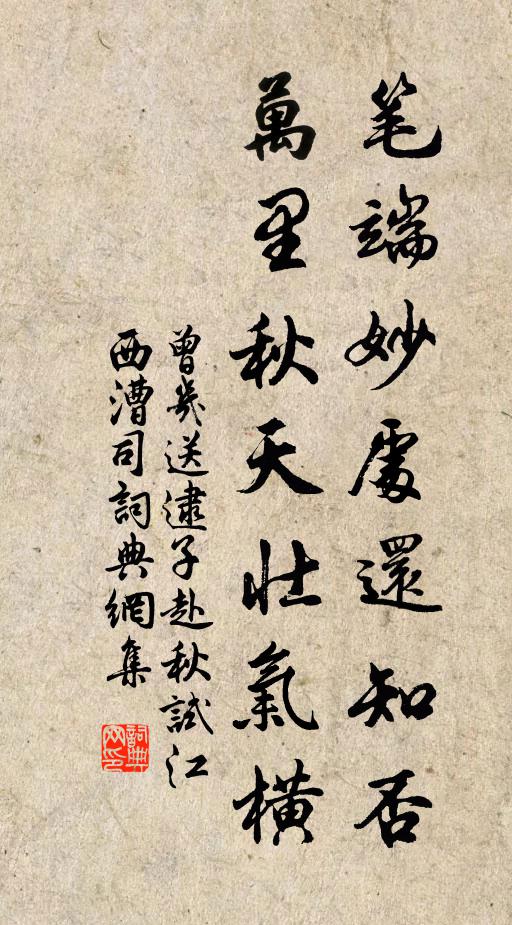 笔端妙處還知否
萬里秋天壯氣橫
曾幾送逮子赴秋試江
西漕司詞典網集
詞典网印